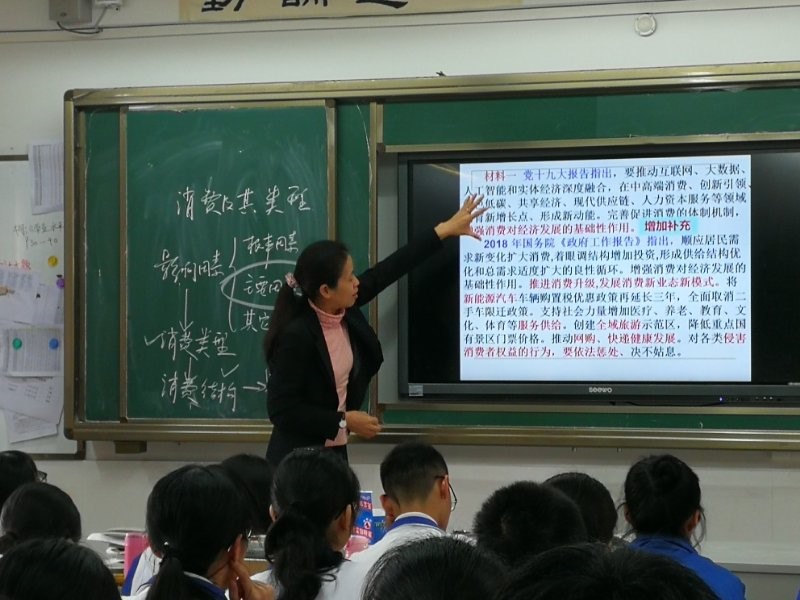 消费及其类型
影响因素
消费类型
消费结构
其它
材料一 党十九大报告指出，要推动互联网、大数据、
人工智能和实体经济深度融合，在中高端消费、创新引领、
低碳、共享经济、现代供应链、人力资本服务等领域
育新增长点、形成新动能。完善促进消费的体制机制，
强消费对经济发展的基础性作用。 增加补充
2018 年国务院《政府工作报告》指出，顺应居民需
求新变化扩大消费,着眼调结构增加投资,形成供给结构优
化和总需求适度扩大的良性循环。增强消费对经济发展的
基础性作用。推进消费升级,发展消费新业态新模式。将
新能源汽车车辆购置税优惠政策再延长三年，全面取消二
手车限迁政策。支持社会力量增加医疗、养老、教育、文
化、体育等服务供给。创建全域旅游示范区，降低重点国
有景区门票价格。推动网购、快递健康发展。对各类侵害
消费者权益的行为，要依法惩处、决不姑息。
seewo